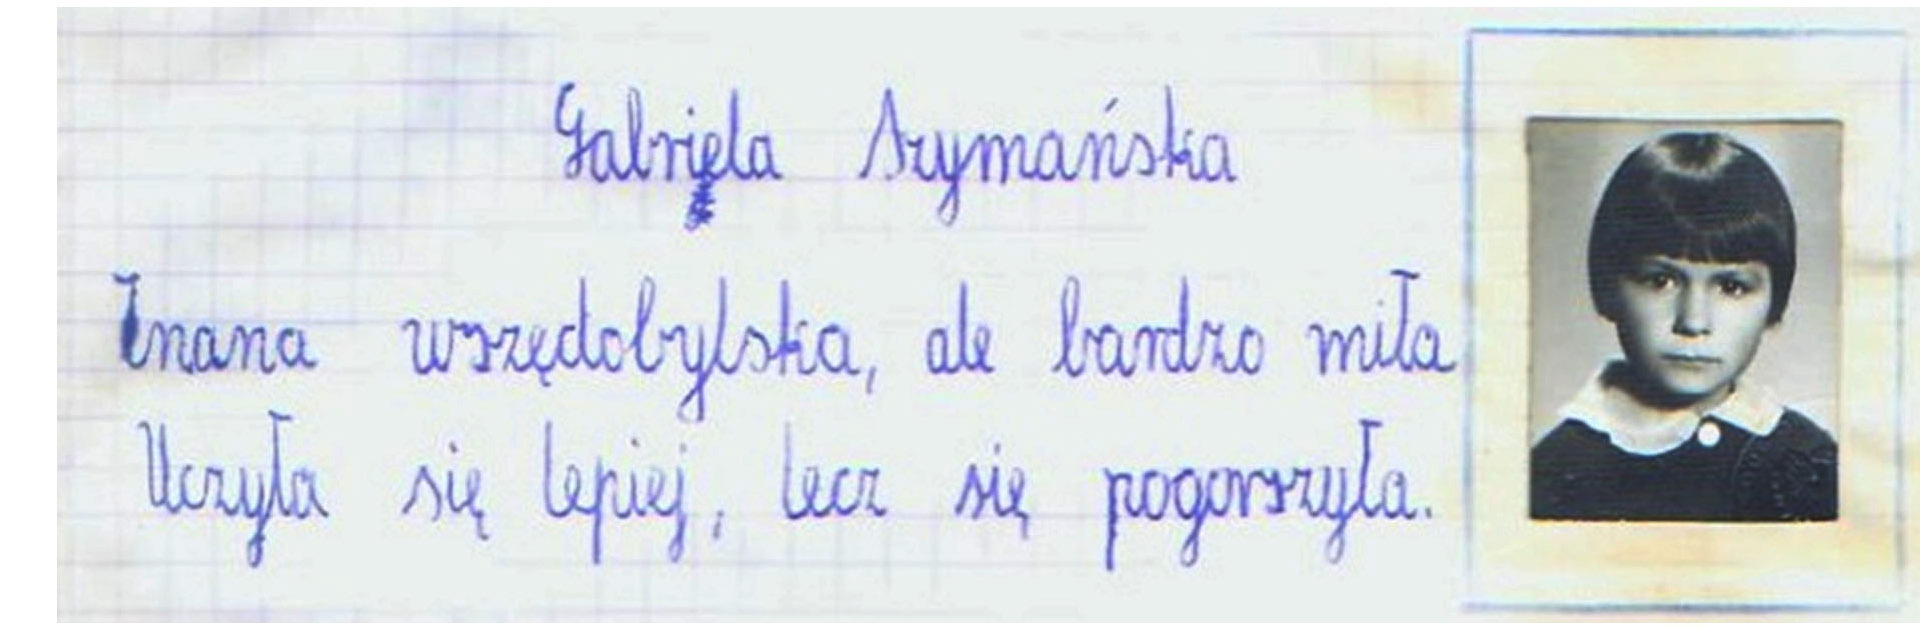 Gabriela Szymańska
Znana wszędobylska, ale bardzo miła
Uczyła się lepiej, lecz się pogorszyła.